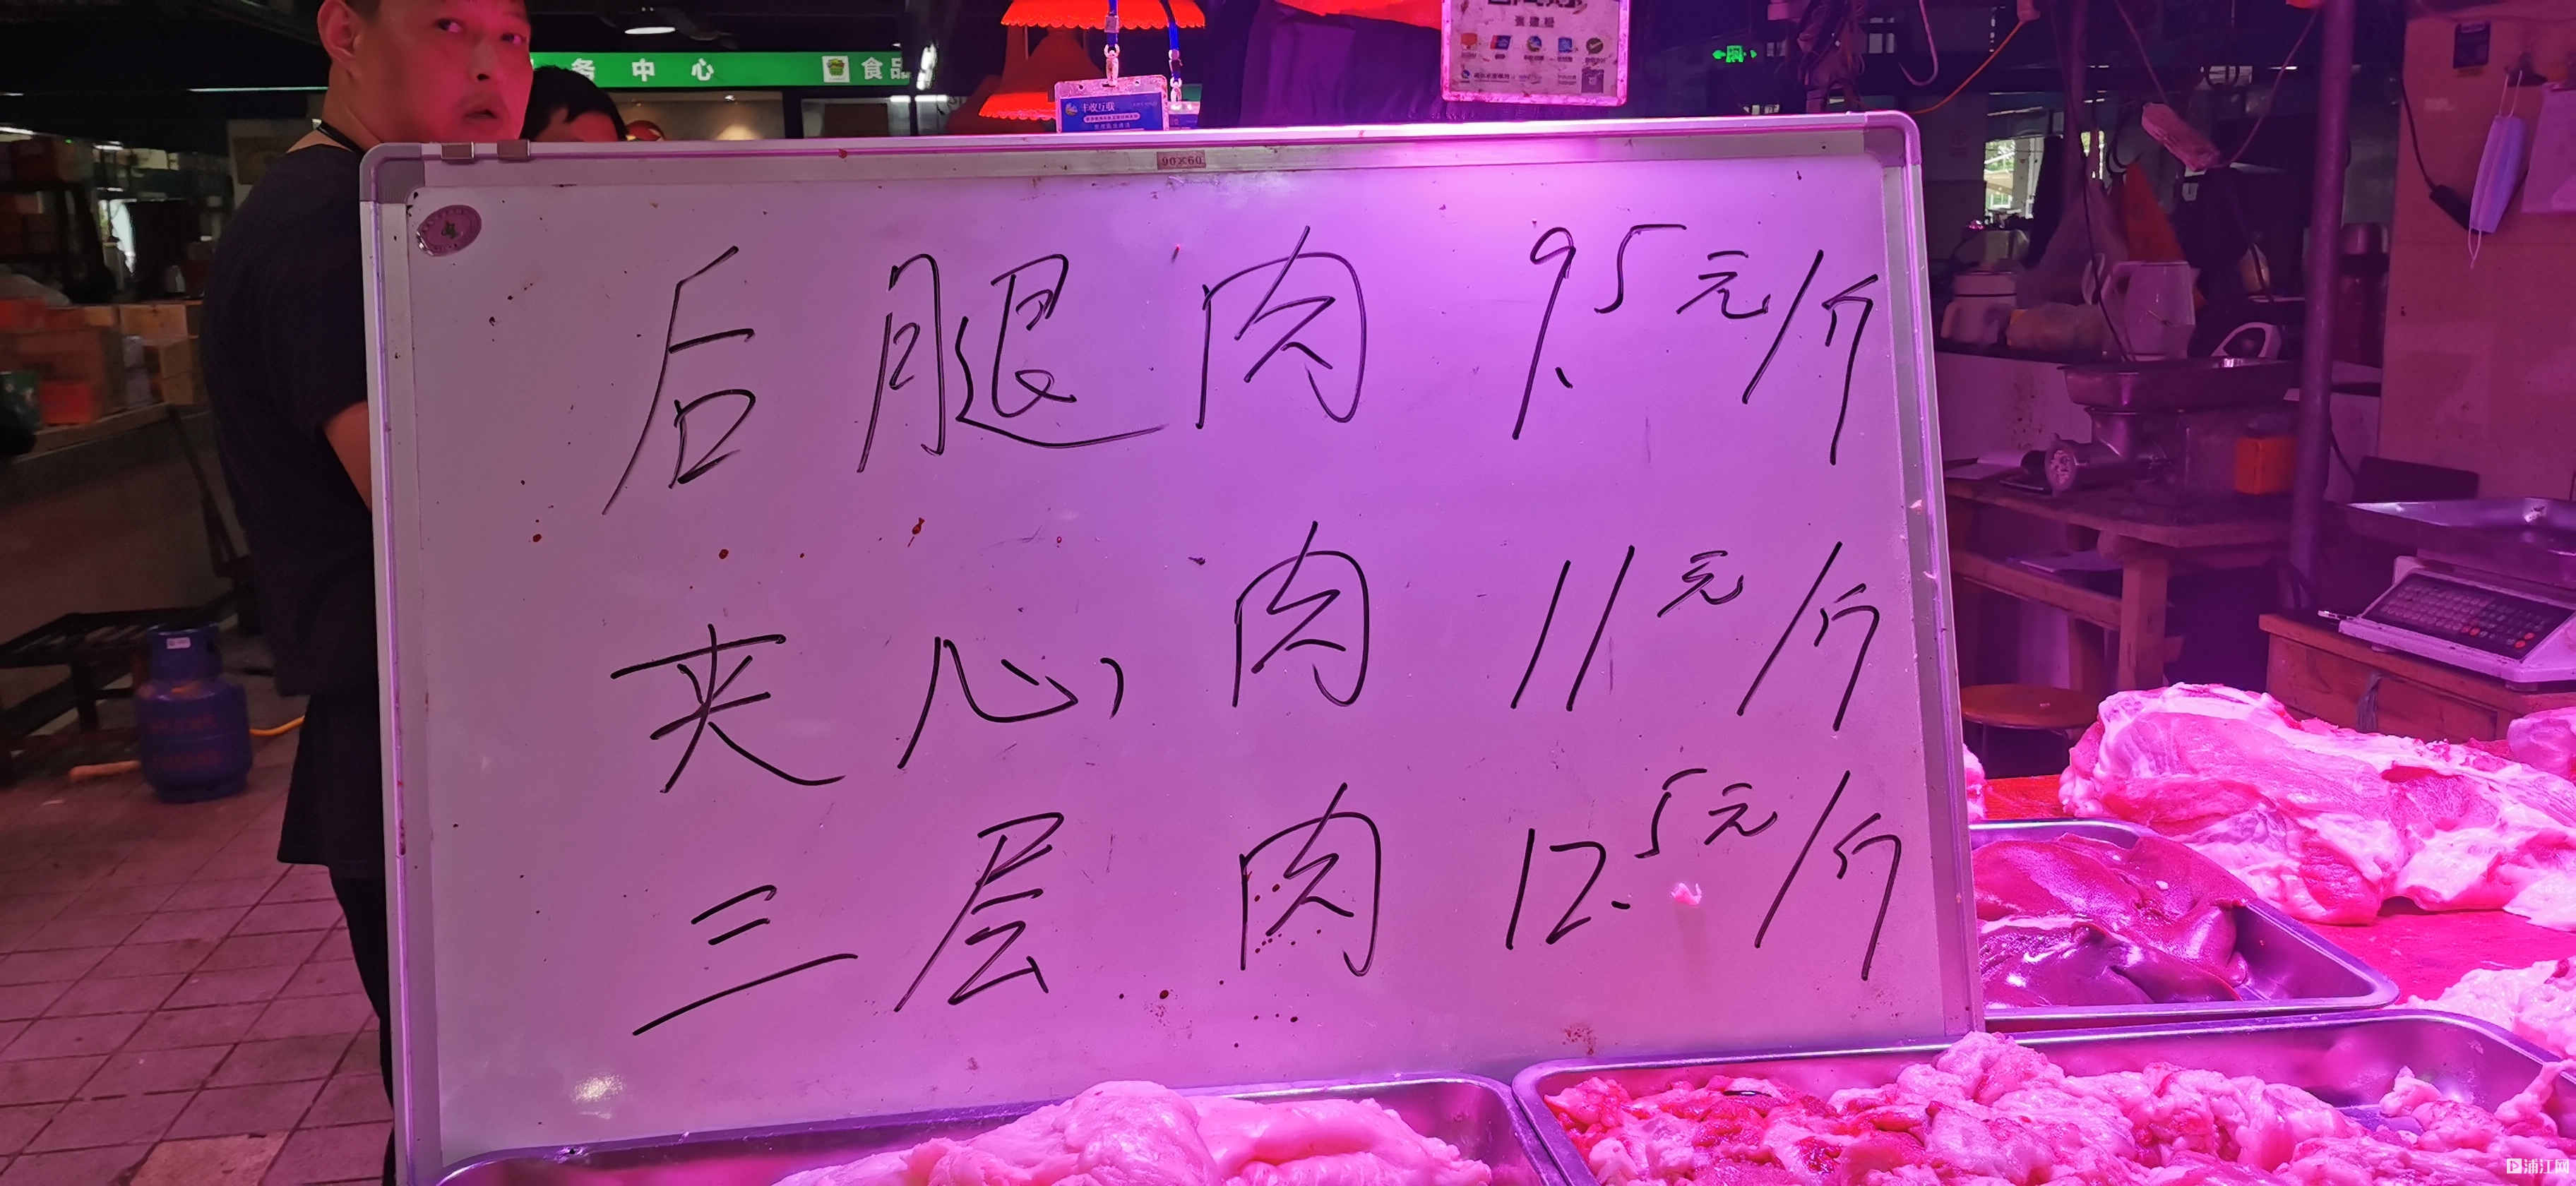 务中心
食品
丰收互联
张建松
90×60
后腿肉 9.5元/斤
夹心肉 11元/斤
三层肉 12.5元/斤
浦江网